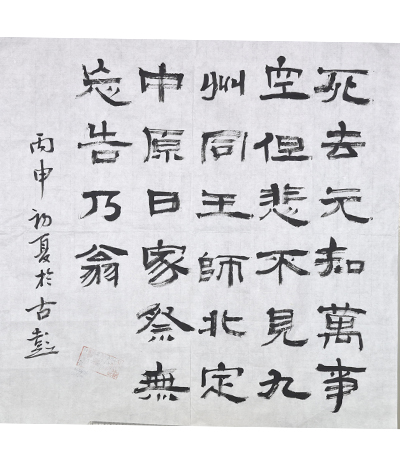 死去元知萬事
空但悲不見九
州同王師北定
中原日家祭無
忘告乃翁
丙申初夏於古彭